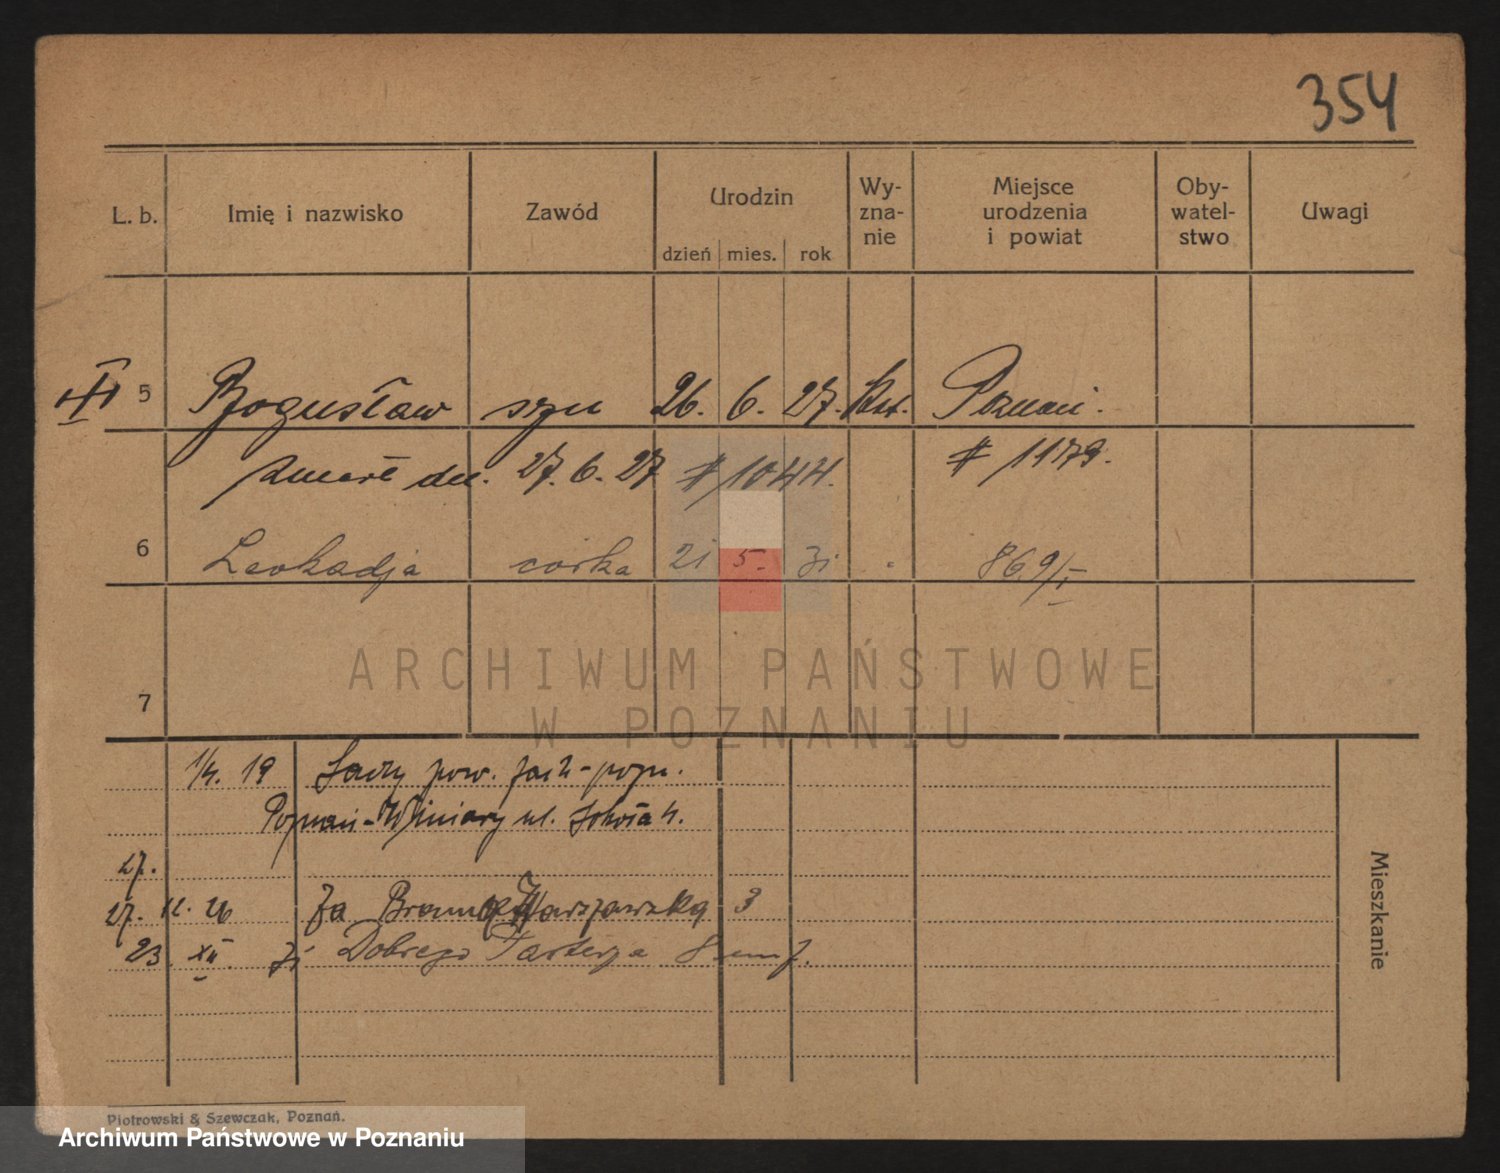 354
L. b. Imię i nazwisko Zawód Urodzin dzień mies. rok Wy-zna-nie Miejsce urodzenia i powiat Oby-watel-stwo Uwagi
5 Bogusław syn 26. 6. 27. kat. Poznań.
zmarł dn. 27. 6. 27 # 1044. # 1179.
6 Leokadja córka 21 5. 31 869/
ARCHIWUM PAŃSTWOWE
W POZNANIU
7
1/4. 19 Sady pow. zach-pozn.
Poznań-Winiary ul. 4.
27.
27. 12. 26 Za Bramą Warszawską 3
23. XII. 31 Dobrego Pasterza 8
Mieszkanie
Piotrowski & Szewczak, Poznań.
Archiwum Państwowe w Poznaniu